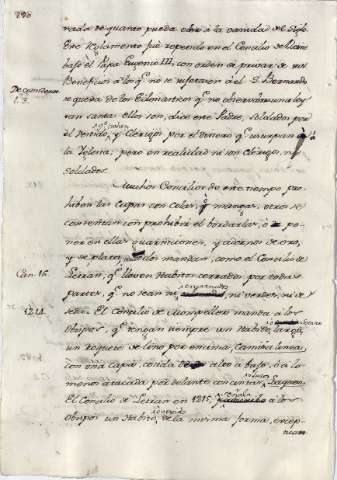 nada de quanto pueda oler a la vanidad del siglo.
Este reglamento fue repetido en el Concilio de
bajo el Papa Eugenio III, con orden de privar de sus
Beneficios a los q.e no se sujetaren a él. S. Bernardo
se queda de los Eclesiasticos q.e no observaban una ley
tan santa: ellos son, dice este Padre, soldados por
el vestido, y Clerigos por el dinero q.e usurpan a
la Iglesia; pero en realidad ni son Clerigos, ni
soldados.
Muchos Concilios de este tiempo pro-
hiben las Capas con colas, y mangas, otros se
contentan con prohibir el bordarlas, ó po-
ner en ellas guarniciones, y adornos de oro,
y de plata; mandan, como el Concilio de
Can. 16.
Letran, q.e lleven Habitos cerrados por todas
partes, q.e no sean ni encarnados, ni verdes, ni de
1214.
seda. El Concilio de Mompeller manda a los
Obispos, q.e tengan siempre un Habito largo,
un Roquete de lino por encima, Camisia linea,
con una Capa, cosida de alto a baxo, ó a lo
menos atacada por delante con cintas,
El Concilio de Letran en 1215, a los
Obispos un Habito de la misma forma, excep-